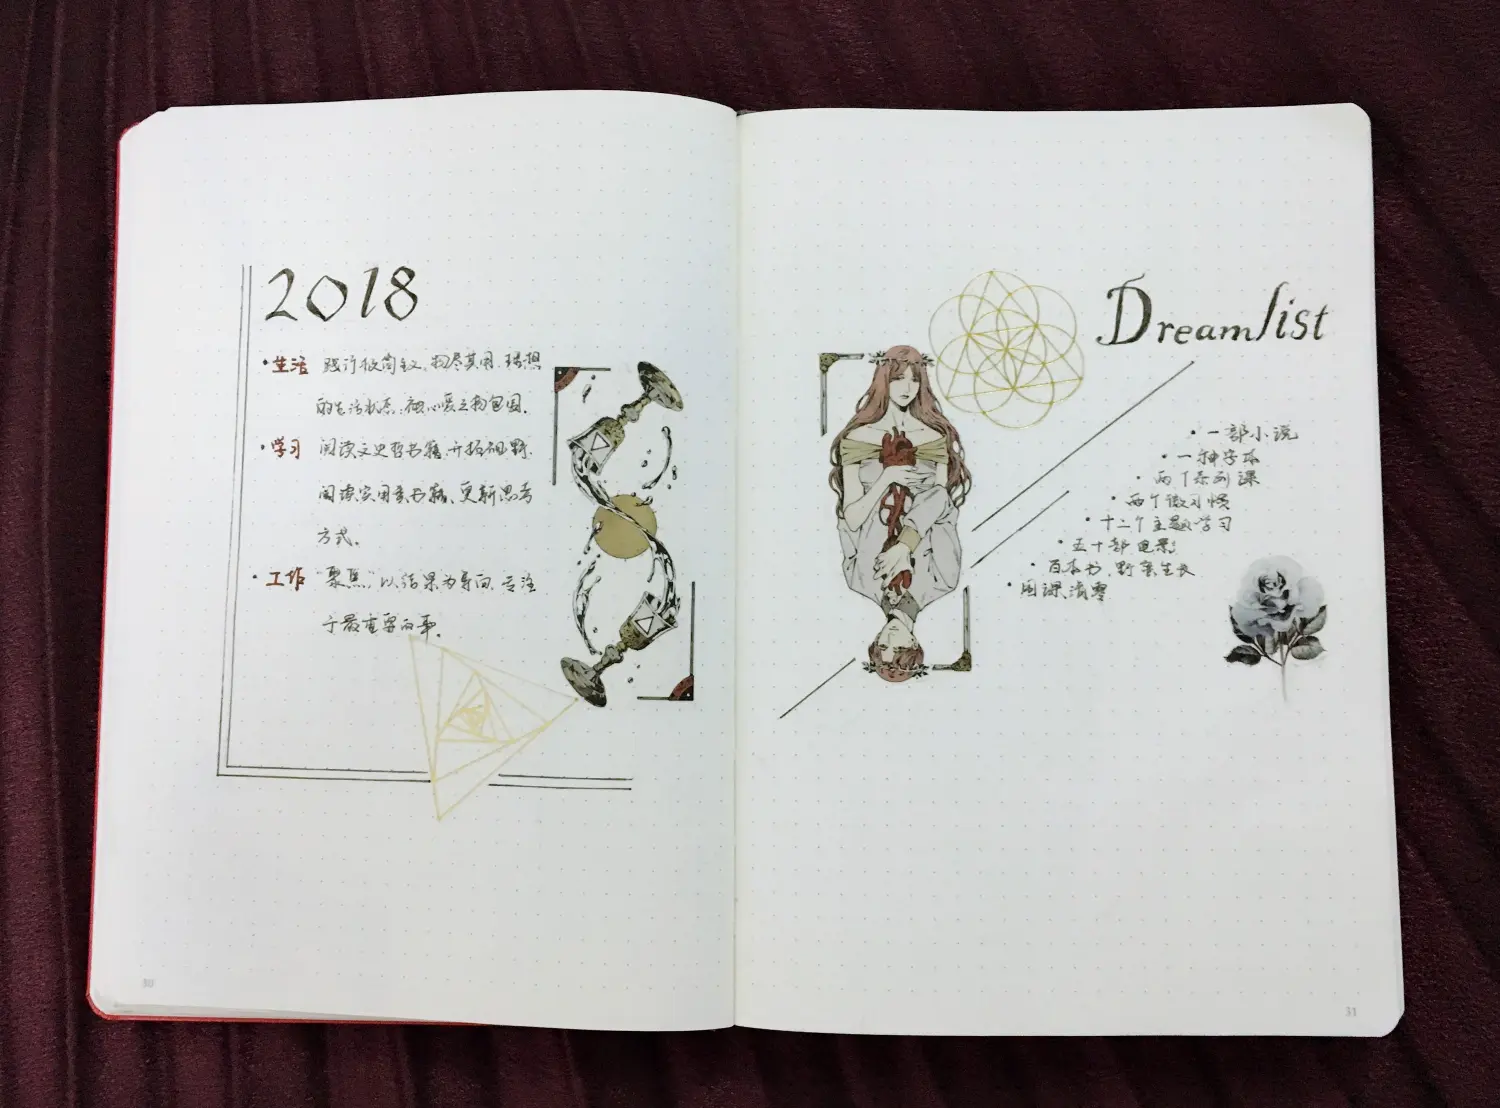 2018
• 生活 践行极简主义,物尽其用,理想
的生活状态:被心爱之物包围。
• 学习 阅读文史哲书籍,开拓视野.
阅读实用类书籍,更新思考
方式。
• 工作 "聚焦",以结果为导向,专注
于最重要的事。
30
Dreamlist
• 一部小说
• 一种字体
• 两个系列课
• 两个微习惯
• 十二个主题学习
• 五十部电影
• 百本书,野蛮生长
• 囤课清零
31